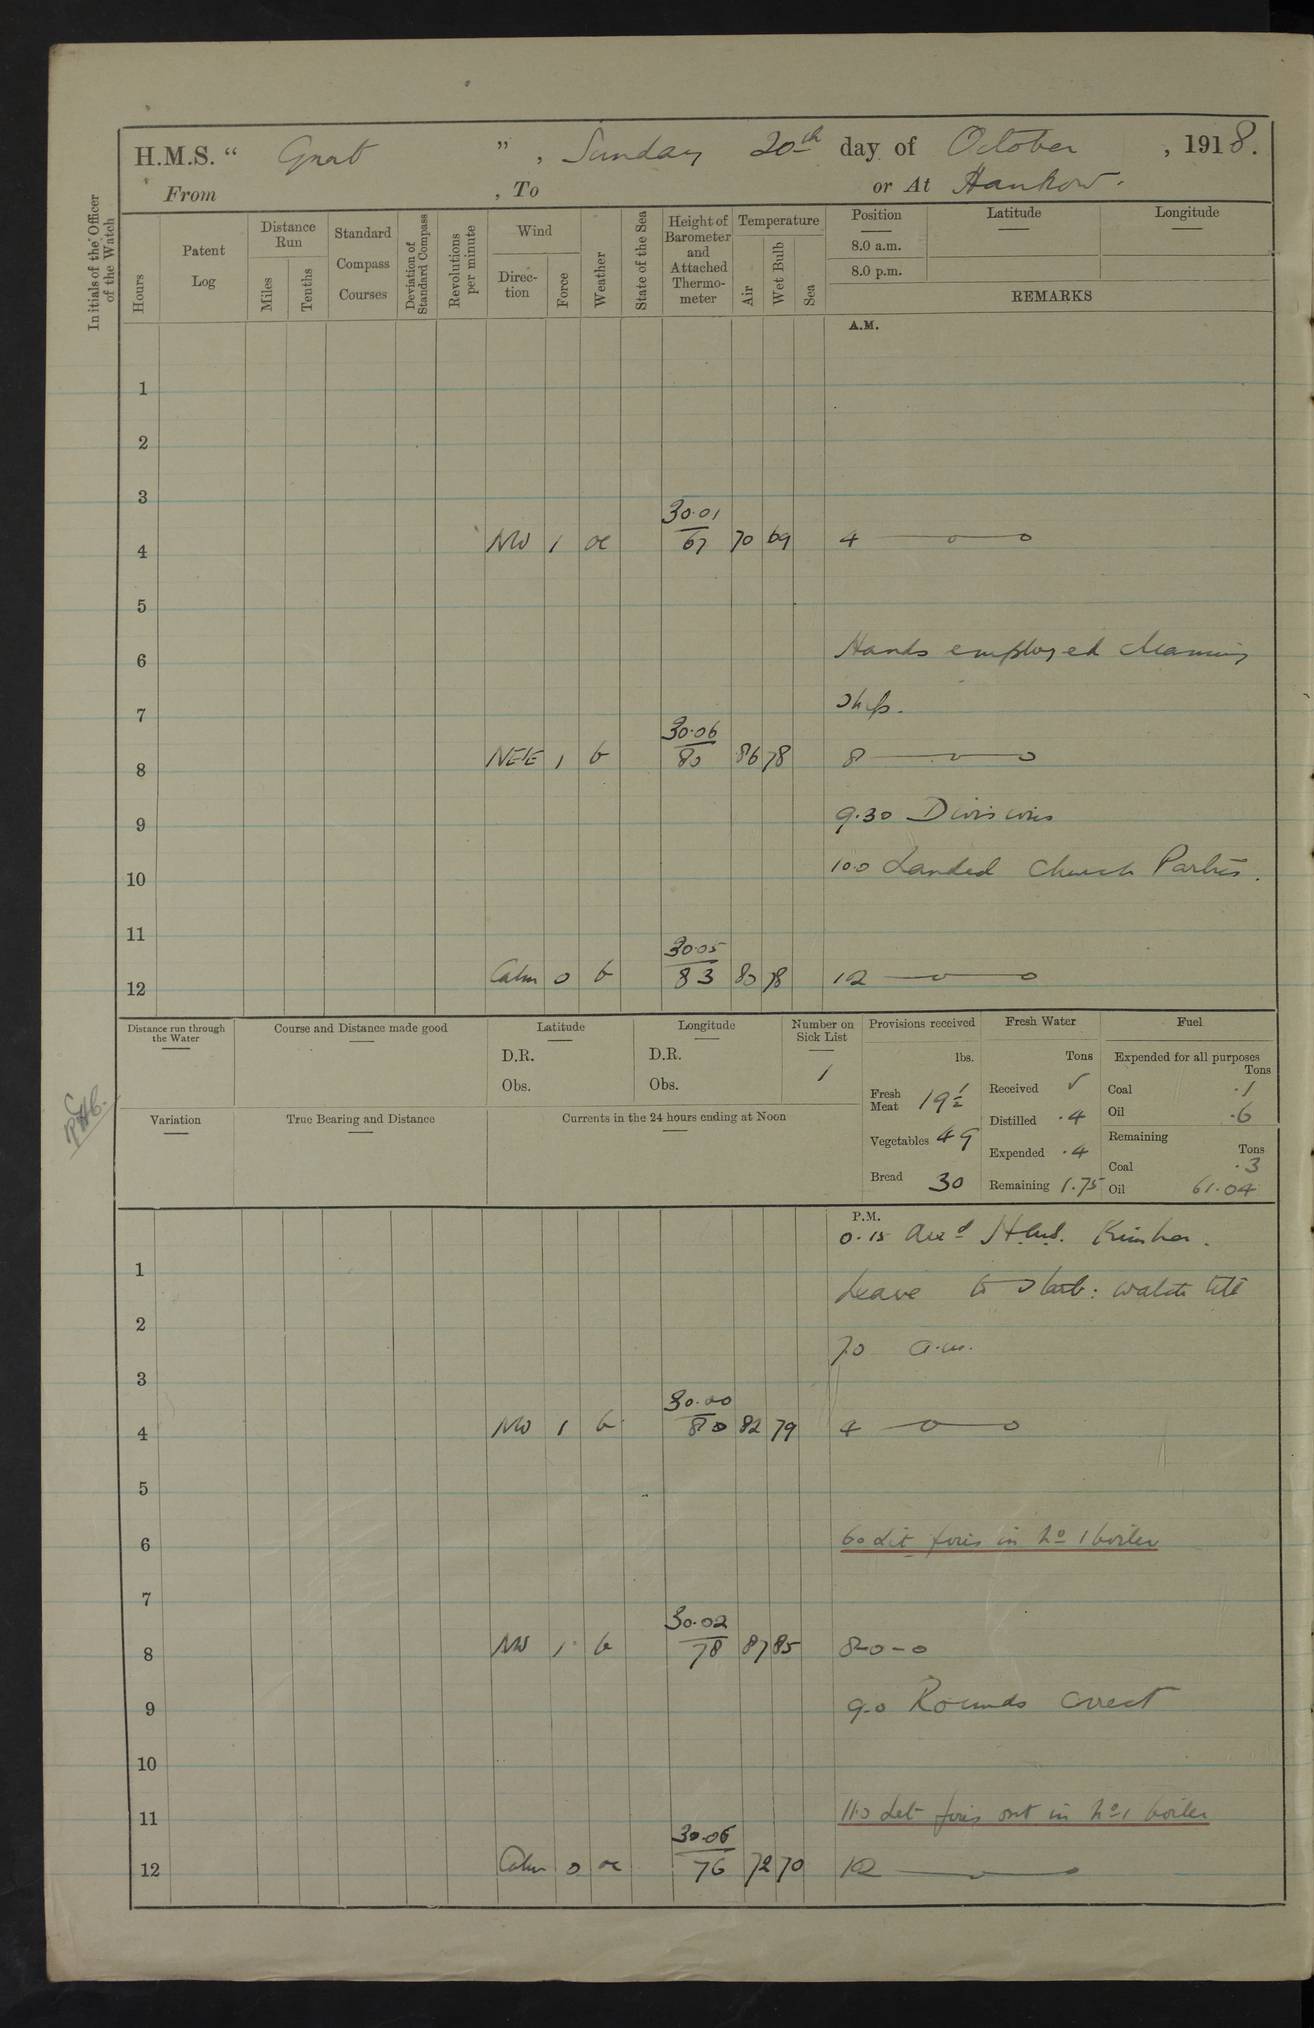 H.M.S. “ Gnat ” , Sunday 20th day of October , 1918.
From , To or At Hankow.
Initials of the Officer of the Watch
Hours
Patent Log
Distance Run
Miles
Tenths
Standard Compass Courses
Deviation of Standard Compass
Revolutions per minute
Wind
Direction
Force
Weather
State of the Sea
Height of Barometer and Attached Thermometer
Temperature
Air
Wet Bulb
Sea
Position
8.0 a.m.
8.0 p.m.
Latitude
Longitude
REMARKS
A.M.
1
2
3
30.01
4 NW 1 oc 67 70 69 4 — o — o
5
6 Hands employed cleaning
7 ship.
30.06
8 1 b 80 86 78 8 — o — o
9 9.30 Divisions
10 10.0 Landed Church Parties.
11
30.05
12 Calm 0 b 83 80 78 12 — o — o
Distance run through the Water
Course and Distance made good
Latitude
D.R.
Obs.
Longitude
D.R.
Obs.
Number on Sick List
1
Provisions received
lbs.
Fresh Meat 19½
Vegetables 49
Bread 30
Fresh Water
Tons
Received √
Distilled .4
Expended .4
Remaining 1.75
Fuel
Expended for all purposes
Tons
Coal .1
Oil .6
Remaining
Tons
Coal .3
Oil 61.04
Variation
True Bearing and Distance
Currents in the 24 hours ending at Noon
P.M.
0.15 Arrd H.M.S. Kinsha.
1 Leave to Starb: watch till
2 7.0 a.m.
3
30.00
4 NW 1 b 80 82 79 4 — o — o
5
6 6.0 Lit fires in No 1 boiler
7
30.02
8 NW 1 b 78 87 85 8-o-o
9 9.0 Rounds correct
10
11 11.0 Let fires out in No 1 boiler
30.06
12 Calm 0 oc 76 72 70 12 — o — o